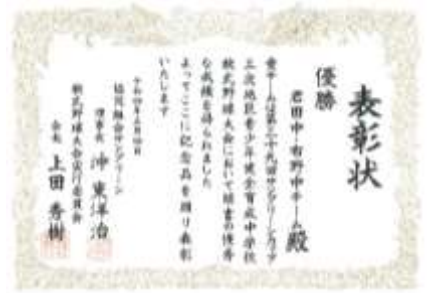 表彰状
優勝
君田中・布野中チーム殿
貴チームは第三十九回サングリーンカップ
三次地区青少年健全育成中学校
軟式野球大会において頭書の優秀
な成績を得られました
よってここに記念品を贈り表彰
いたします
協同組合サングリーン
理事長 沖 東洋治
軟式野球大会実行委員会
会長 上田 秀樹